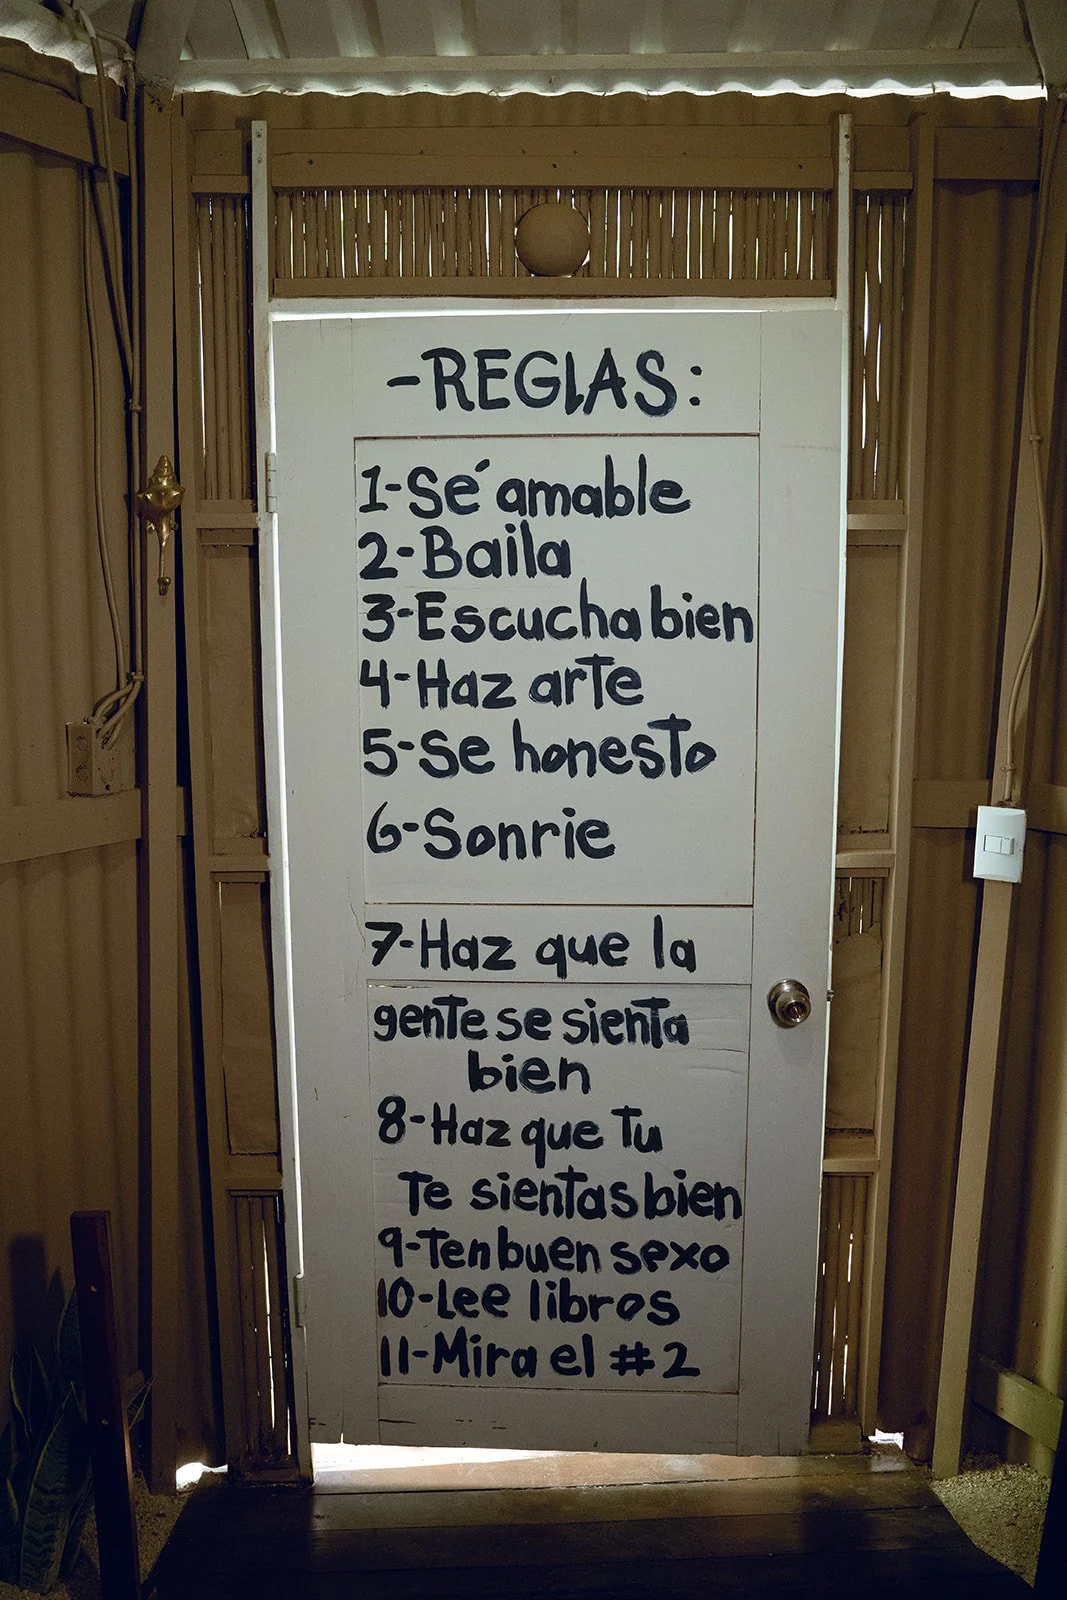 -REGLAS:
1-Sé amable
2-Baila
3-Escucha bien
4-Haz arte
5-Se honesto
6-Sonrie
7-Haz que la
gente se sienta
bien
8-Haz que tu
te sientas bien
9-Ten buen sexo
10-Lee libros
11-Mira el #2